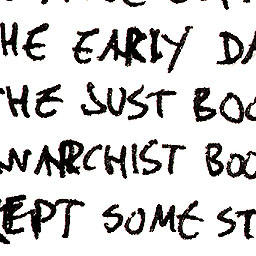 HE EARLY DA
THE SUST BOO
ANARCHIST BOO
KEPT SOME ST